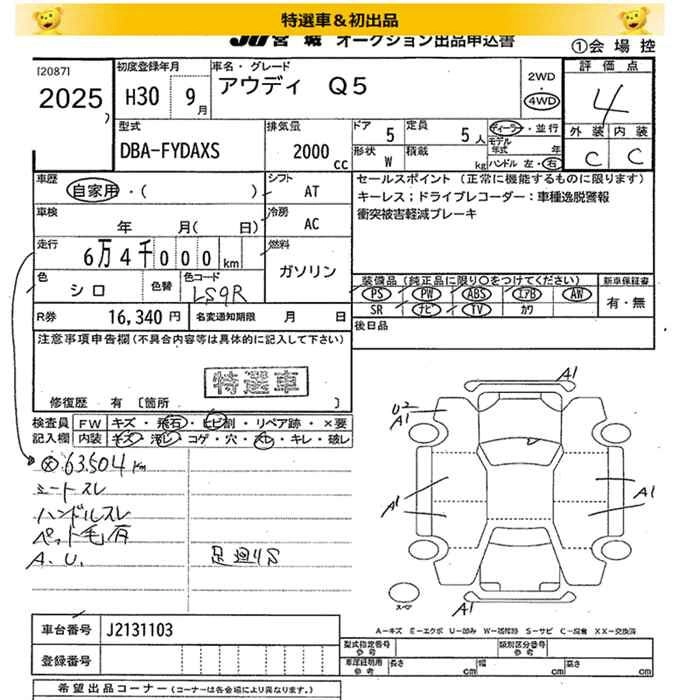 特選車＆初出品
JU宮城 オークション出品申込書
①会場控
[2087]
2025
初度登録年月
H30 9月
車名・グレード
アウディ Q5
2WD
・
4WD
評価点
4
外装 内装
C C
型式
DBA-FYDAXS
排気量
2000 cc
ドア 5
定員 5人
形状 W
積載 kg
ディーラー・並行
モデル年式 年
ハンドル 左・右
車歴
自家用・( )
シフト AT
セールスポイント (正常に機能するものに限ります)
キーレス；ドライブレコーダー：車種逸脱警報
衝突被害軽減ブレーキ
車検
年 月( 日)
冷房 AC
走行
6万4千000km
燃料
ガソリン
色
シロ
色替
色コード
LS9R
装備品 (純正品に限り○をつけてください)
PS PW ABS エアB AW
SR ナビ TV カワ
新車保証書
有・無
R券 16,340円
名変通知期限 月 日
後日品
注意事項申告欄(不具合内容等は具体的に記入して下さい)
特選車
修復歴 有 〔箇所 〕
検査員記入欄
FW キズ・飛石・ヒビ割・リペア跡・×要
内装 キズ・汚レ・コゲ・穴・スレ・キレ・破レ
ⓧ63,504km
ミートスレ
ハンドルスレ
ペット毛有
A.U.
足廻りS
A1
U2
A1
A1
A1
A1
スペア
A－キズ E－エクボ U－凹み W－波補修 S－サビ C－腐食 XX－交換済
車台番号 J2131103
登録番号
型式指定番号 参考
類別区分番号 参考
車庫証明用 参考
長さ cm
幅 cm
高さ cm
希望出品コーナー(コーナーは各会場により異なります。)